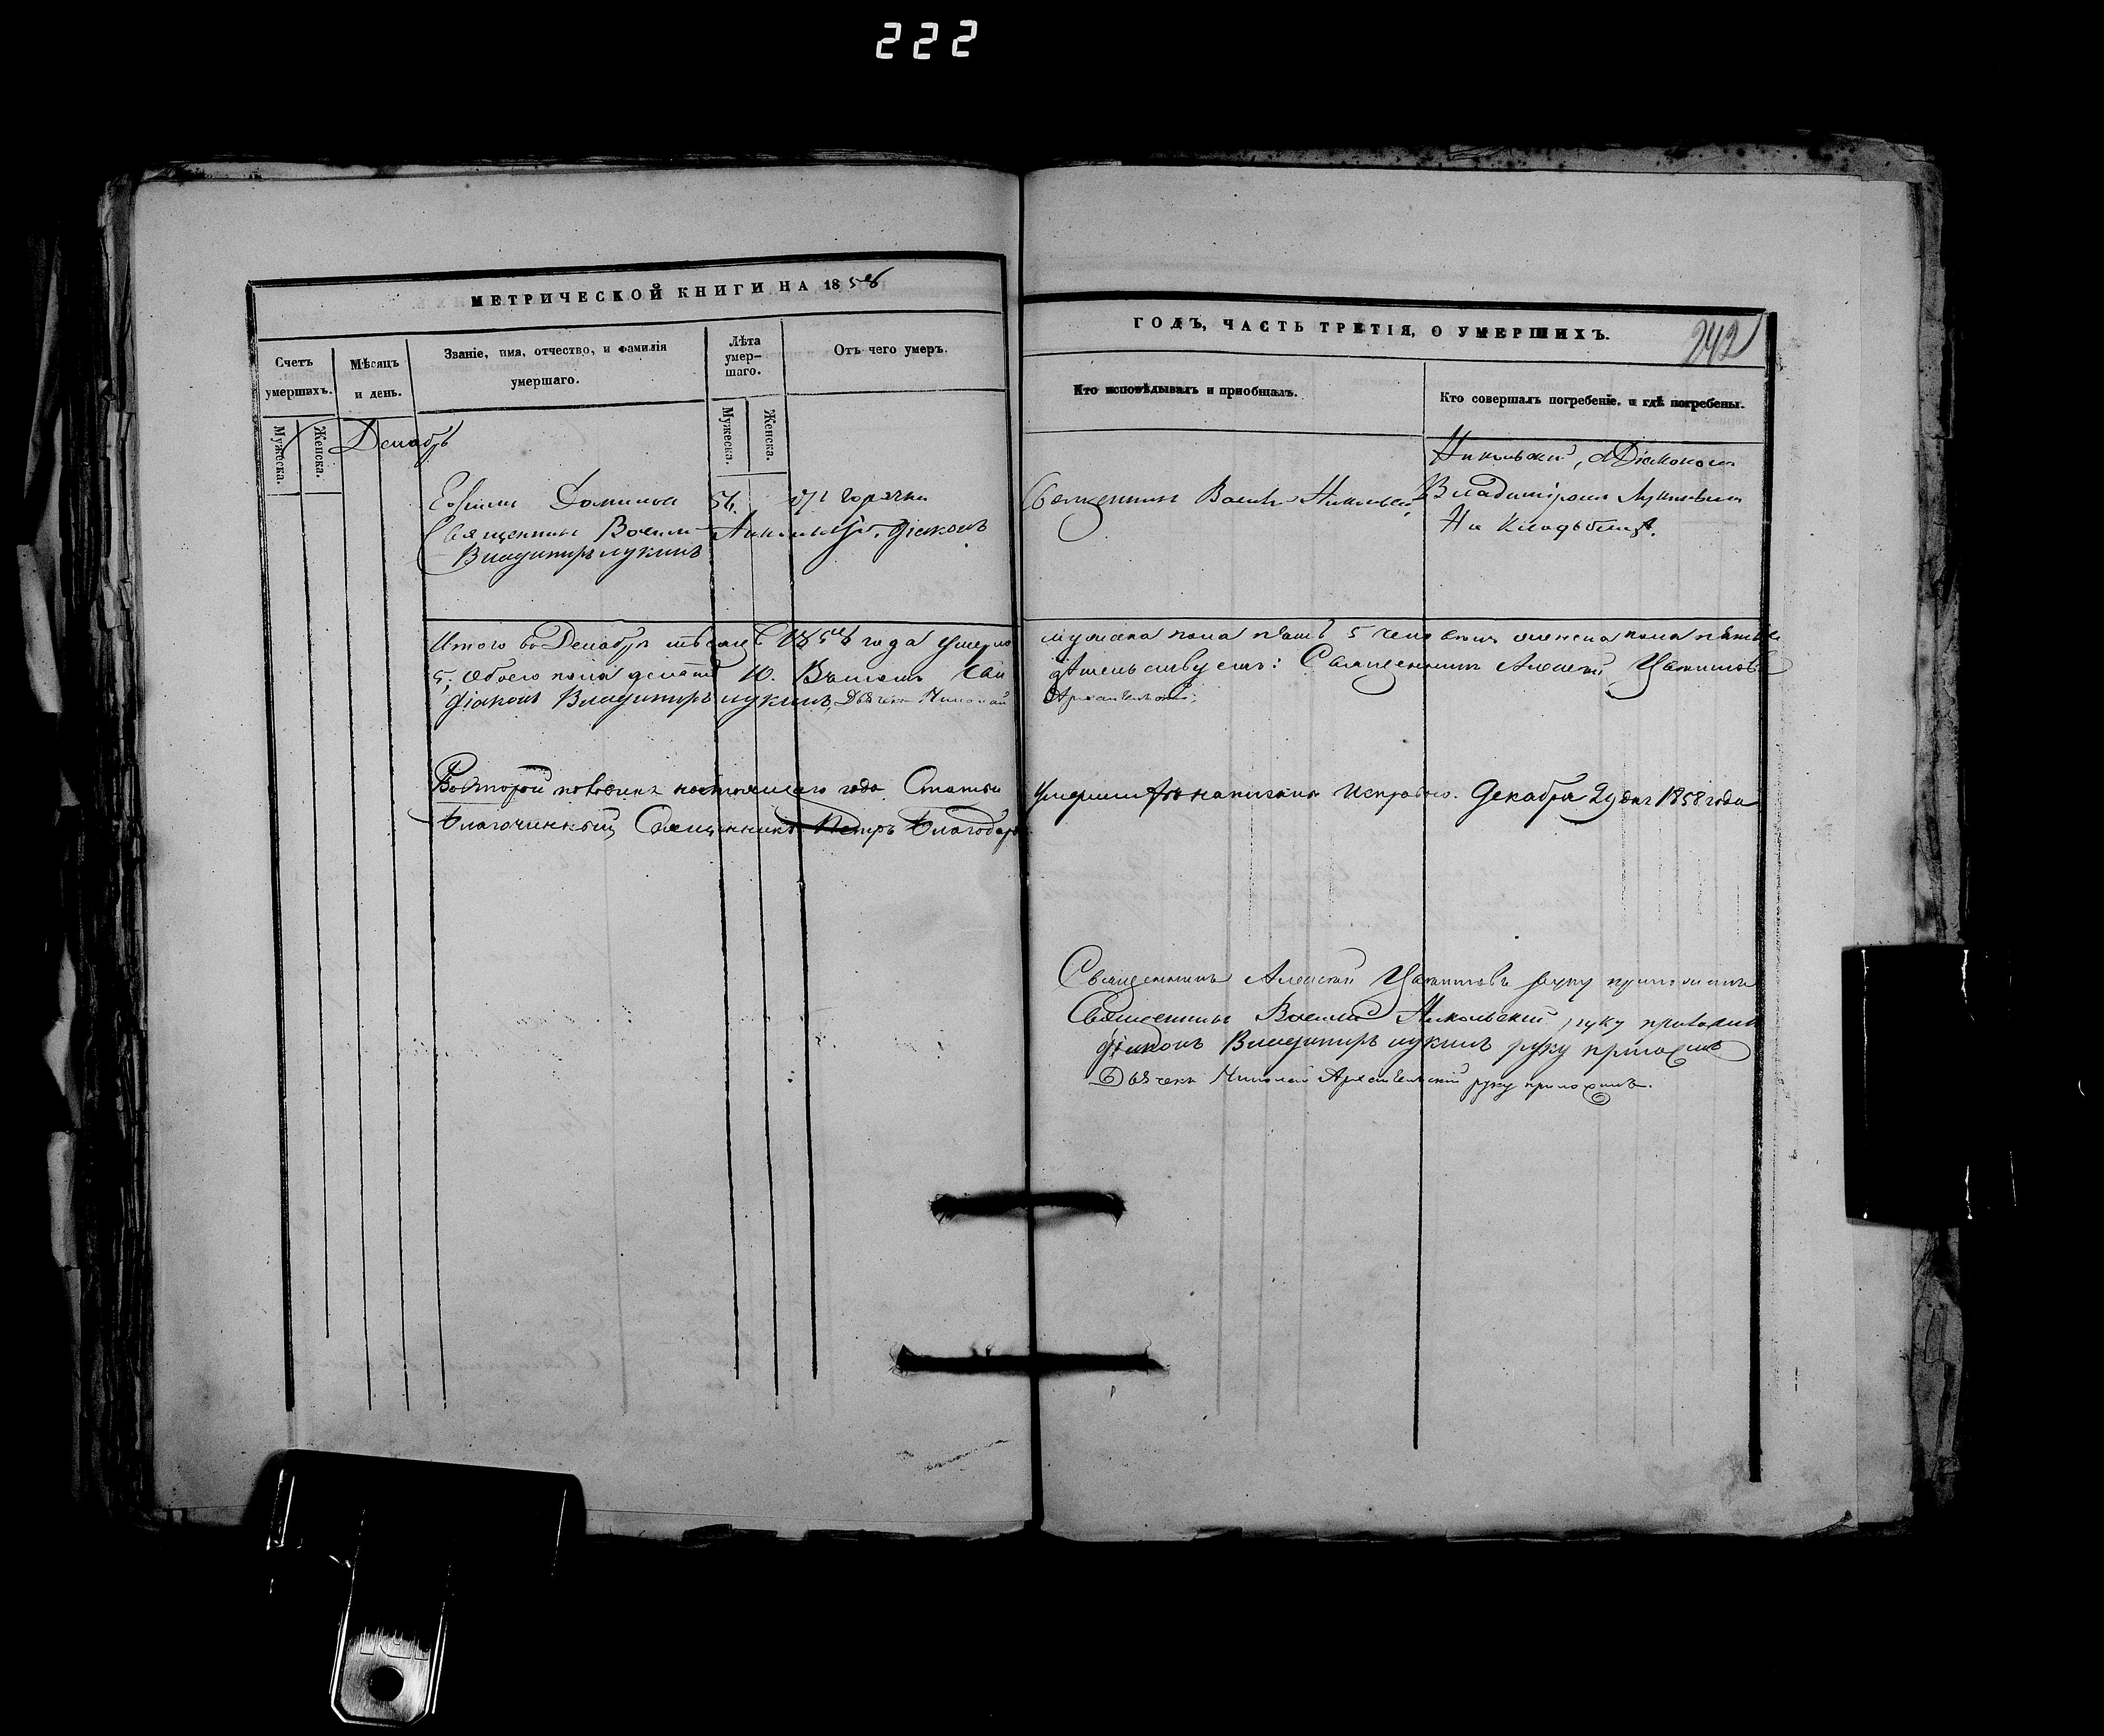 222
МЕТРИЧЕСКОЙ КНИГИ НА 1858
ГОДЪ, ЧАСТЬ ТРЕТІЯ, О УМЕРШИХЪ.
242
Счетъ умершихъ.
Мужеска.
Женска.
Мѣсяцъ и день.
Званіе, имя, отчество, и фамилія умершаго.
Лѣта умер-шаго.
Мужеска.
Женска.
Отъ чего умеръ.
Кто исповѣдывалъ и приобщалъ.
Кто совершалъ погребеніе. и гдѣ погребены.
Декабрь
54. отъ горячки
Священникъ Василій Никольскій, діаконъ
Владимиръ Лукинъ
Священникъ Василій Никольскій
Никольскій, съ Діакономъ
Владиміромъ Лукинымъ
На кладбищѣ.
Итого въ Декабрѣ мѣсяцѣ 1858 года умерло мужеска пола пять 5 человѣкъ женска пола пять
5, обоего пола десять 10. Въ томъ сви дѣтельствуемъ: Священникъ Алексѣй
діаконъ Владимиръ Лукинъ, Дьячекъ Николай Архангельскій.
Во второй половинѣ настоящаго года Статьи умершихъ написаны исправно. Декабря 29 дня 1858 года
Благочинный Священникъ Петръ
Священникъ Алексѣй руку приложилъ
Священникъ Василій Никольскій руку приложилъ
діаконъ Владимиръ Лукинъ руку приложилъ
Дьячекъ Николай Архангельскій руку приложилъ.